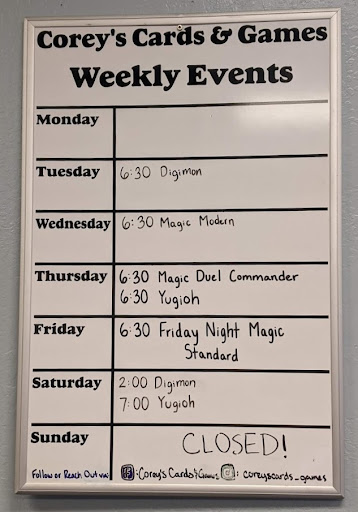 Corey's Cards & Games
Weekly Events
Monday
Tuesday 6:30 Digimon
Wednesday 6:30 Magic Modern
Thursday 6:30 Magic Duel Commander
6:30 Yugioh
Friday 6:30 Friday Night Magic
Standard
Saturday 2:00 Digimon
7:00 Yugioh
Sunday CLOSED!
Follow or Reach Out via: : Corey's Cards & Games : coreyscards_games